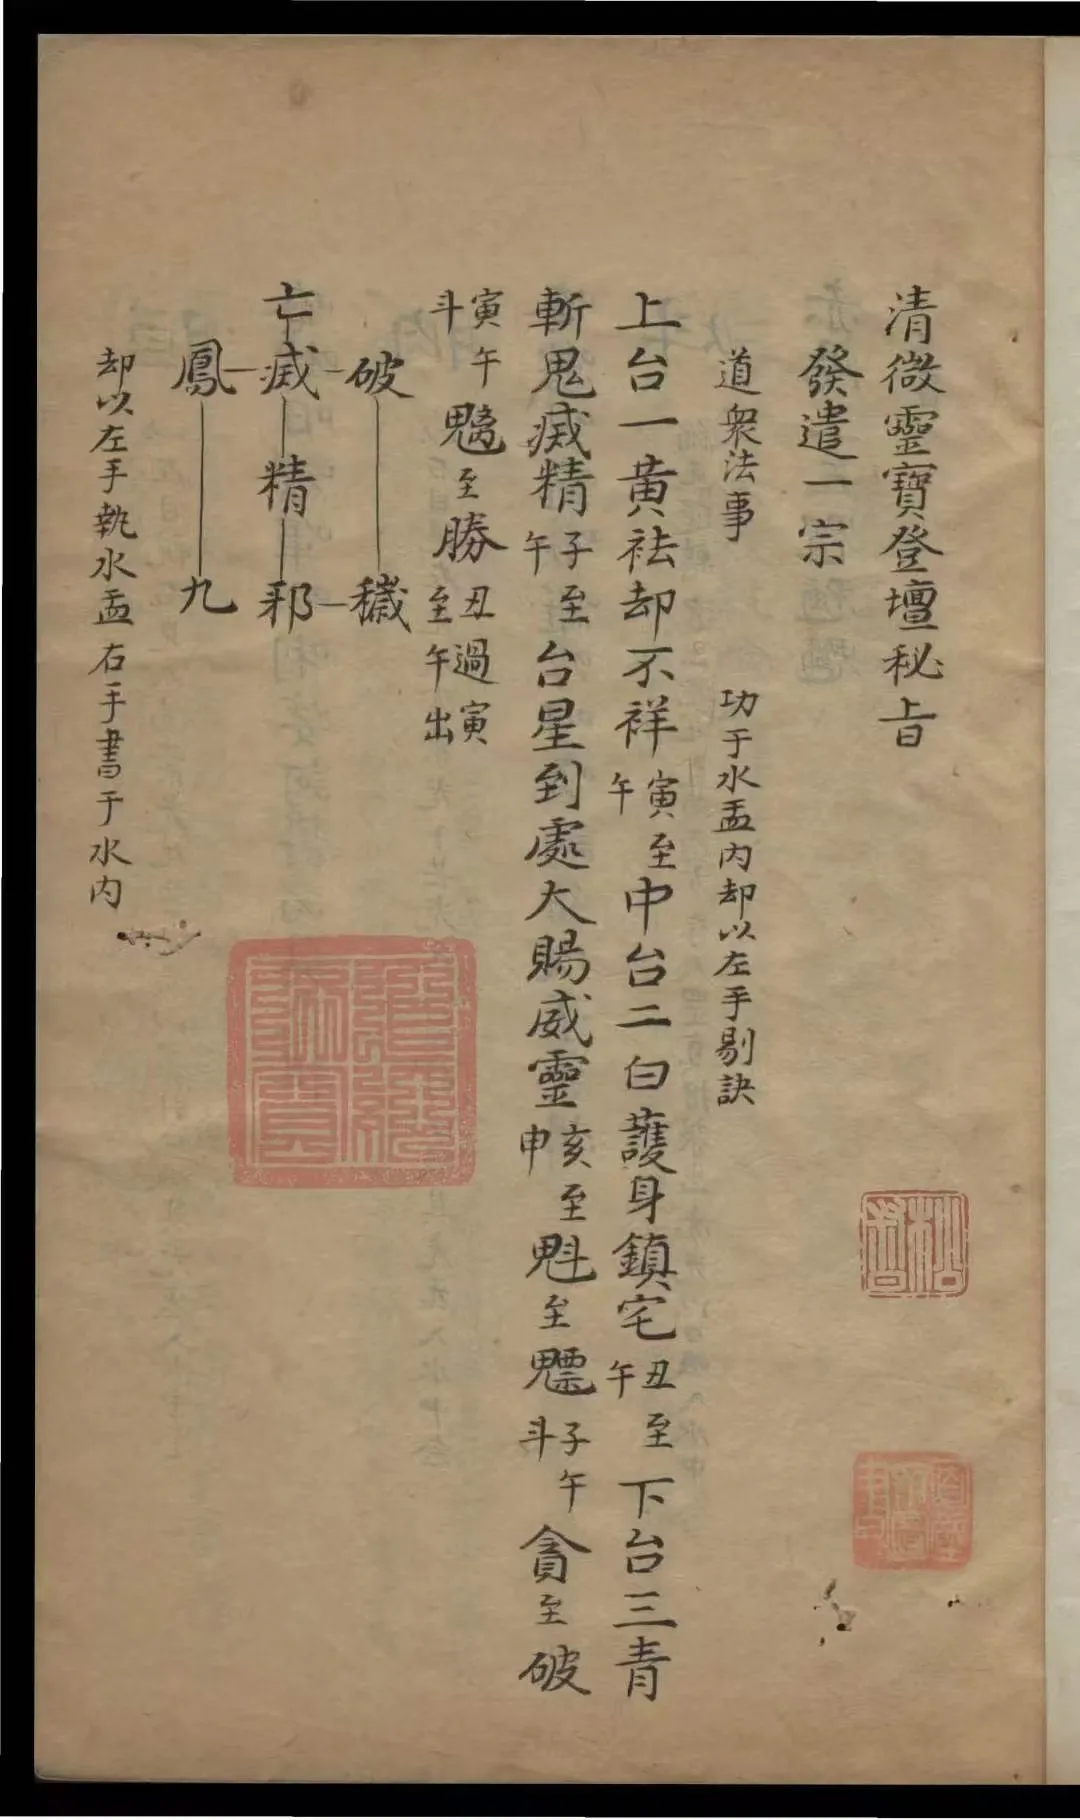 清微靈寶登壇秘旨
發遣一宗
道衆法事 功于水盂内却以左手剔訣
上台一黄祛却不祥寅至午中台二白護身鎮宅丑至午下台三青
斬鬼㓕精子至午台星到處大賜威靈亥至申魁至魒子午斗貪至破
寅午斗魓至勝丑過寅至午出
破 穢
亡㓕精邪
鳳 九
却以左手執水盂右手書于水内